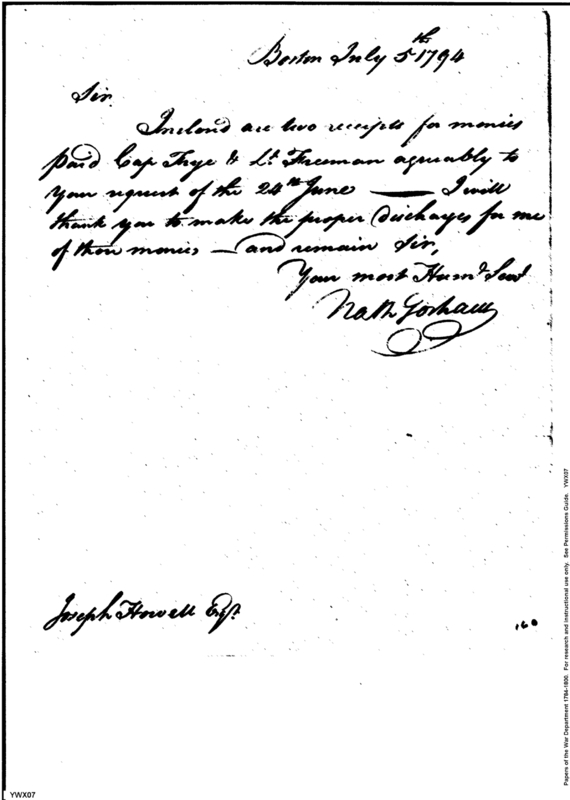 Boston July 5th 1794
Sir.
Inclosd are two receipts for monies
paid Cap Frye & Lt. Freeman agreably to
your request of the 24th June — I will
thank you to make the proper discharges for me
of those monies — and remain Sir,
Your most Humb Servt
Nath Gorham
Joseph Howell Esqr.
160
Papers of the War Department 1784-1800. For research and instructional use only. See Permissions Guide. YWX07
YWX07